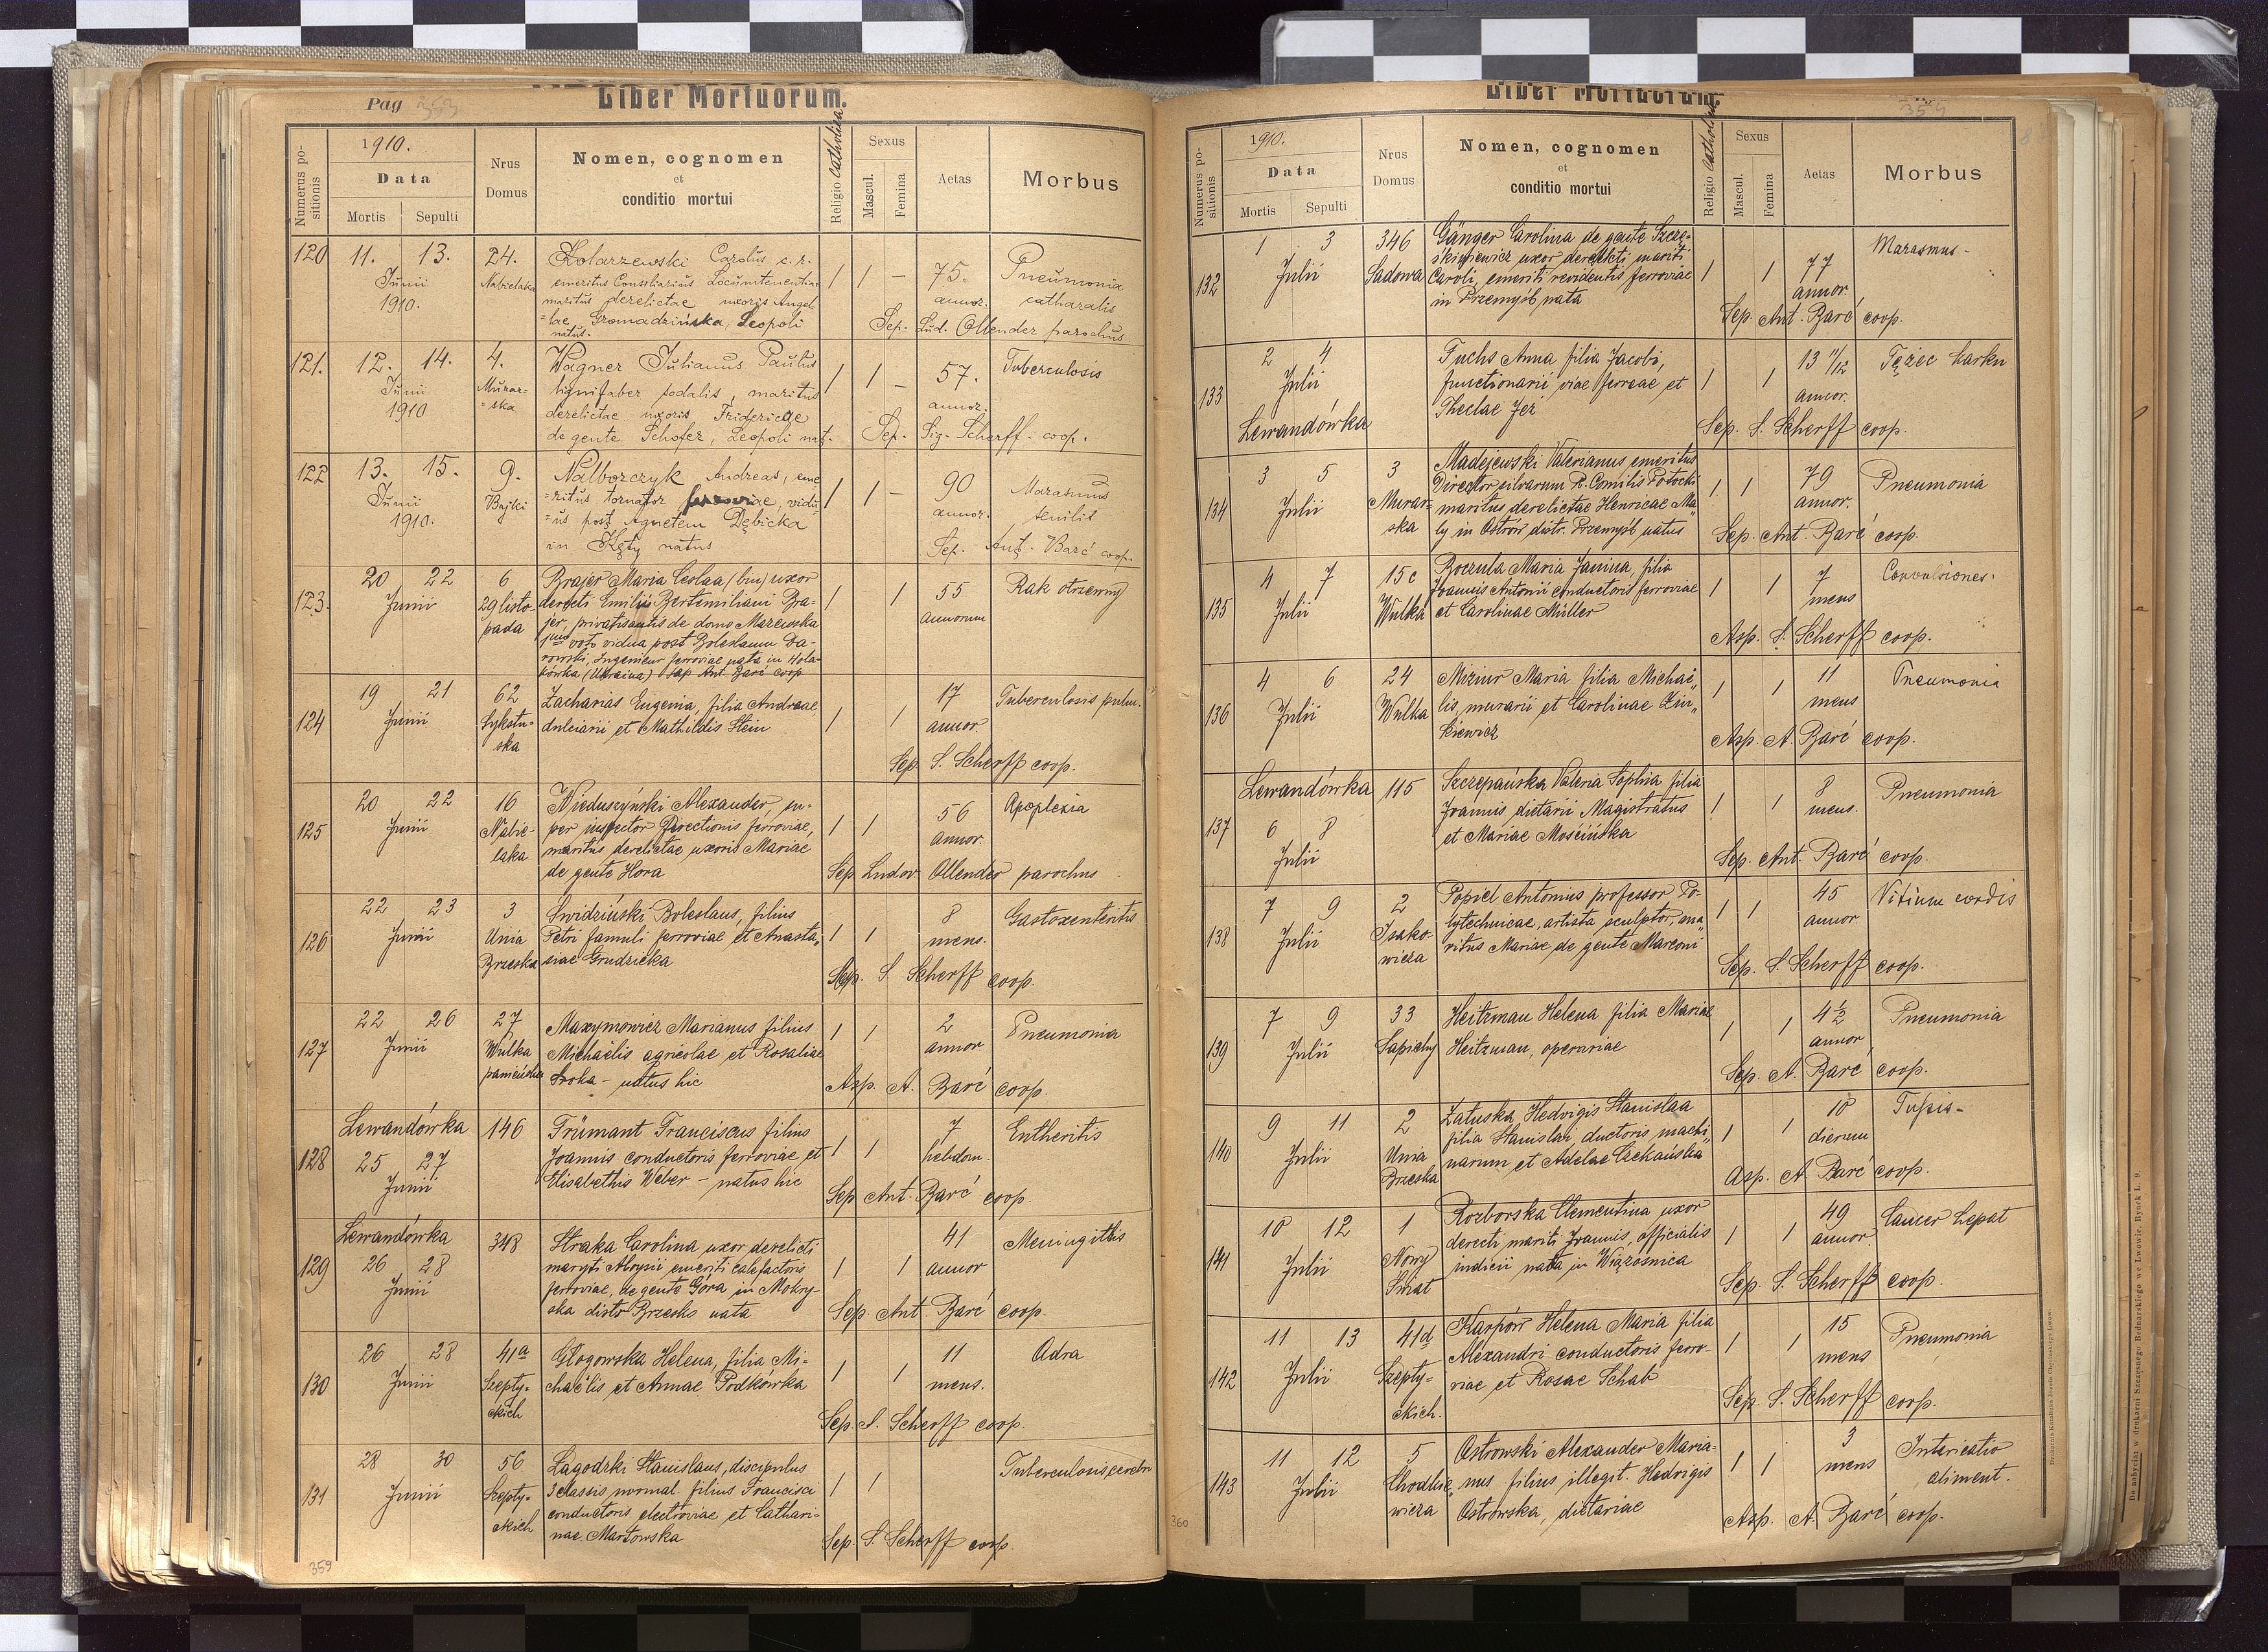 Pag 353
Liber Mortuorum.
Numerus positionis
1910.
Data
Mortis
Sepulti
Nrus Domus
Nomen, cognomen
et
conditio mortui
Religio Catholica
Sexus
Mascul.
Femina
Aetas
Morbus
120 11. 13. Junii 1910. 24. Nabielaka
Kolarzewski Carolus c. r.
emeritus Consiliarius Locumtenentiae
maritus derelictae uxoris Angel-
=lae Gromadzińska, Leopoli
natus.
1 1 – 75. annor. Pneumonia catharalis
Sep. Lud. Ollender parochus
121. 12. 14. Junii 1910 4. Murar-
=ska
Wagner Julianus Paulus
lignifaber sodalis, maritus
derelictae uxoris Fridericae
de gente Schofer, Leopoli nat.
1 1 – 57. annor. Tuberculosis
Sep. Sig. Scherff. coop.
122 13. 15. Junii 1910. 9. Bajki
Nalborczyk Andreas, eme
=ritus tornator ferroviae, vidu-
=us post Agnetem Dębicka
in Kęty natus
1 1 – 90 annor. Marasmus senilis
Sep. Ant. Barć coop.
123. 20 22 Junii 6 29 listo-
pada
Brajer Maria Ceslaa (bin) uxor
derecti Emilii Bertemiliani Bra-
jer, privatisantis de domo Mazewska
1mo voto vidua post Boleslaum Da-
rowski, Ingenieur ferroviae nata in Hola-
kówka (Ukraina) Sep. Ant. Barć coop
1 1 55 annorum Rak otrzewny
124 19 21 Junii 62 Sykstu-
ska
Zacharias Eugenia, filia Andreae
dulciarii et Mathildis Stein
1 1 17 annor. Tuberculosis pulm.
Sep S. Scherff coop.
125 20 22 Junii 16 Nabie-
laka
Nieduszyński Alexander, su-
per inspector Directionis ferroviae,
maritus derelictae uxoris Mariae
de gente Hora
1 1 56 annor. Apoplexia
Sep. Ludov. Ollender parochus
126 22 23 Junii 3 Unia Brzeska
Swidziński Boleslaus, filius
Petri famuli ferroviae et Anasta-
siae Grudzicka
1 1 8 mens. Gastoenteritis
Sep. S. Scherff coop.
127 22 26 Junii 27 Wulka panieńska
Maxymowicz Marianus filius
Michaëlis agricolae et Rosaliae
Sroka – natus hic
1 1 2 annor Pneumonia
Asp. A. Barć coop.
128 Lewandówka 25 27 Junii 146
Trümant Franciscus filius
Joannis conductoris ferroviae et
Elisabethis Weber – natus hic
1 1 7 hebdom. Entheritis
Sep. Ant. Barć coop.
129 Lewandówka 26 28 Junii 348
Straka Carolina uxor derelicti
maryti Aloysii emeriti calefactoris
ferroviae, de gente Góra in Mokry-
ska distr. Brzesko nata
1 1 41 annor Meningitis
Sep. Ant. Barć coop.
130 26 28 Junii 41a Szepty-
ckich
Głogowska Helena, filia Mi-
chaëlis et Annae Podkówka
1 1 11 mens. Odra
Sep. S. Scherff coop.
131 28 30 Junii 56 Szepty-
ckich
Lagodzki Stanislaus, discipulus
3 classis normal. filius Francisci
conductoris electroviae et Cathari-
nae Martowska
1 1 Tuberculosis cerebri
Sep. S. Scherff coop.
359
354
Liber Mortuorum.
Numerus positionis
1910.
Data
Mortis
Sepulti
Nrus Domus
Nomen, cognomen
et
conditio mortui
Religio Catholica
Sexus
Mascul.
Femina
Aetas
Morbus
132 1 3 Julii 346 Sadowa
Gänger Carolina de gente Szczę-
skiewicz uxor derelicti mariti
Caroli, emeriti revidentis ferroviae
in Przemyśl nata
1 1 77 annor. Marasmus -
Sep. Ant. Barć coop.
133 2 4 Julii Lewandówka
Fuchs Anna filia Jacobi,
functionarii viae ferreae et
Theclae Jeż
1 1 13 11/12 annor. Tężec karku
Sep. S. Scherff coop.
134 3 5 Julii 3 Murar-
ska
Madejewski Valerianus emeritus
Director silvarum R. Comitis Potocki
maritus derelictae Henricae Ma-
ly in Ostrów distr. Przemyśl natus
1 1 79 annor. Pneumonia
Sep. Ant. Barć coop.
135 4 7 Julii 15c Wulka
Boczula Maria Janina, filia
Joannis Antonii conductoris ferroviae
et Carolinae Müller
1 1 7 mens Convulsiones.
Asp. S. Scherff coop.
136 4 6 Julii 24 Wulka
Miziur Maria filia Michaë-
lis, murarii et Carolinae Zin-
kiewicz
1 1 11 mens Pneumonia
Asp. A. Barć coop.
137 Lewandówka 6 8 Julii 115
Szczepańska Valeria Sophia filia
Joannis dietarii Magistratus
et Mariae Mościńska
1 1 8 mens. Pneumonia
Sep. Ant. Barć coop.
138 7 9 Julii 2 Isako-
wicza
Popiel Antonius professor Po-
lytechnicae, artista sculptor, ma-
ritus Mariae de gente Marconi
1 1 45 annor Vitium cordis
Sep. S. Scherff coop.
139 7 9 Julii 33 Sapiehy
Heitzman Helena filia Mariae
Heitzman, operariae
1 1 4½ annor Pneumonia
Sep. A. Barć coop.
140 9 11 Julii 2 Unia Brzeska
Załuska Hedvigis Stanislaa
filia Stanislai, ductoris machi-
narum et Adelae Czekańska
1 1 10 dierum
Asp. A. Barć coop.
141 10 12 Julii 1 Nowy Świat
Rozborska Clementina uxor
derecti mariti Joannis, officialis
iudicii nata in Wiązownica
1 1 49 annor. Cancer hepat
Sep. S. Scherff coop.
142 11 13 Julii 41d Szepty-
ckich.
Karpów Helena Maria filia
Alexandri conductoris ferro-
viae et Rosae Schab
1 1 15 mens Pneumonia
Sep. S. Scherff coop.
143 11 12 Julii 5 Chodkie-
wicza
Ostrowski Alexander Maria-
nus filius illegit. Hedvigis
Ostrowska, dietariae
1 1 3 mens Intoxicatio aliment.
Asp. A. Barć coop.
360
Do nabycia w drukarni Szczęsnego Bednarskiego we Lwowie, Rynek L. 9.